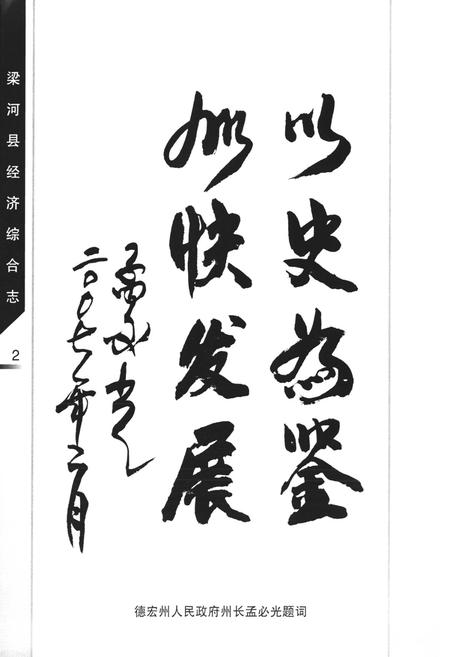 梁河县经济综合志
2
以史为鉴
加快发展
孟必光
二〇〇七年二月
德宏州人民政府州长孟必光题词